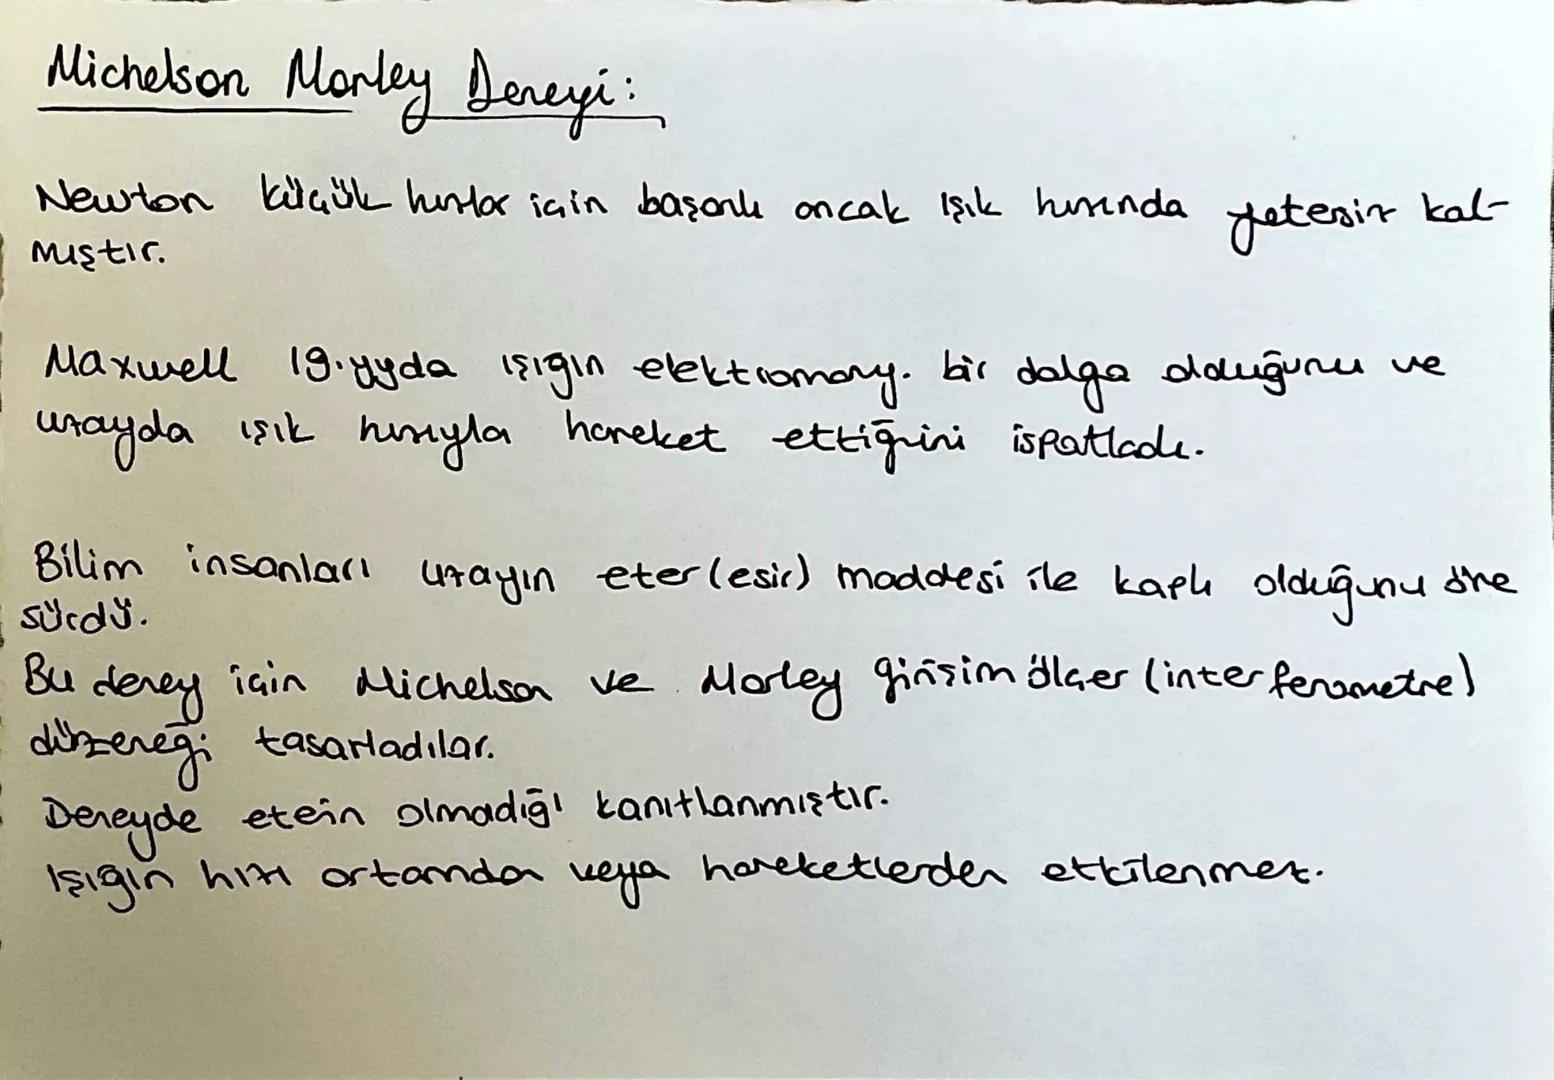 Michelson Morley Deneyi:
Newton küçük hızlar için başarılı ancak ışık hızında yetersiz kal-
mıştır.
Maxwell 19.yyda ışığın elektromany. bir dalga olduğunu ve
uzayda ışık hızıyla hareket ettiğini ispatladı.
Bilim insanları uzayın eter (esir) maddesi ile kaplı olduğunu öne
sürdü.
Bu deney için Michelson ve Morley girişim ölçer (interferometre)
düzeneği tasarladılar.
Deneyde eterin olmadığı kanıtlanmıştır.
Işığın hızı ortamdan veya hareketlerden etkilenmez.